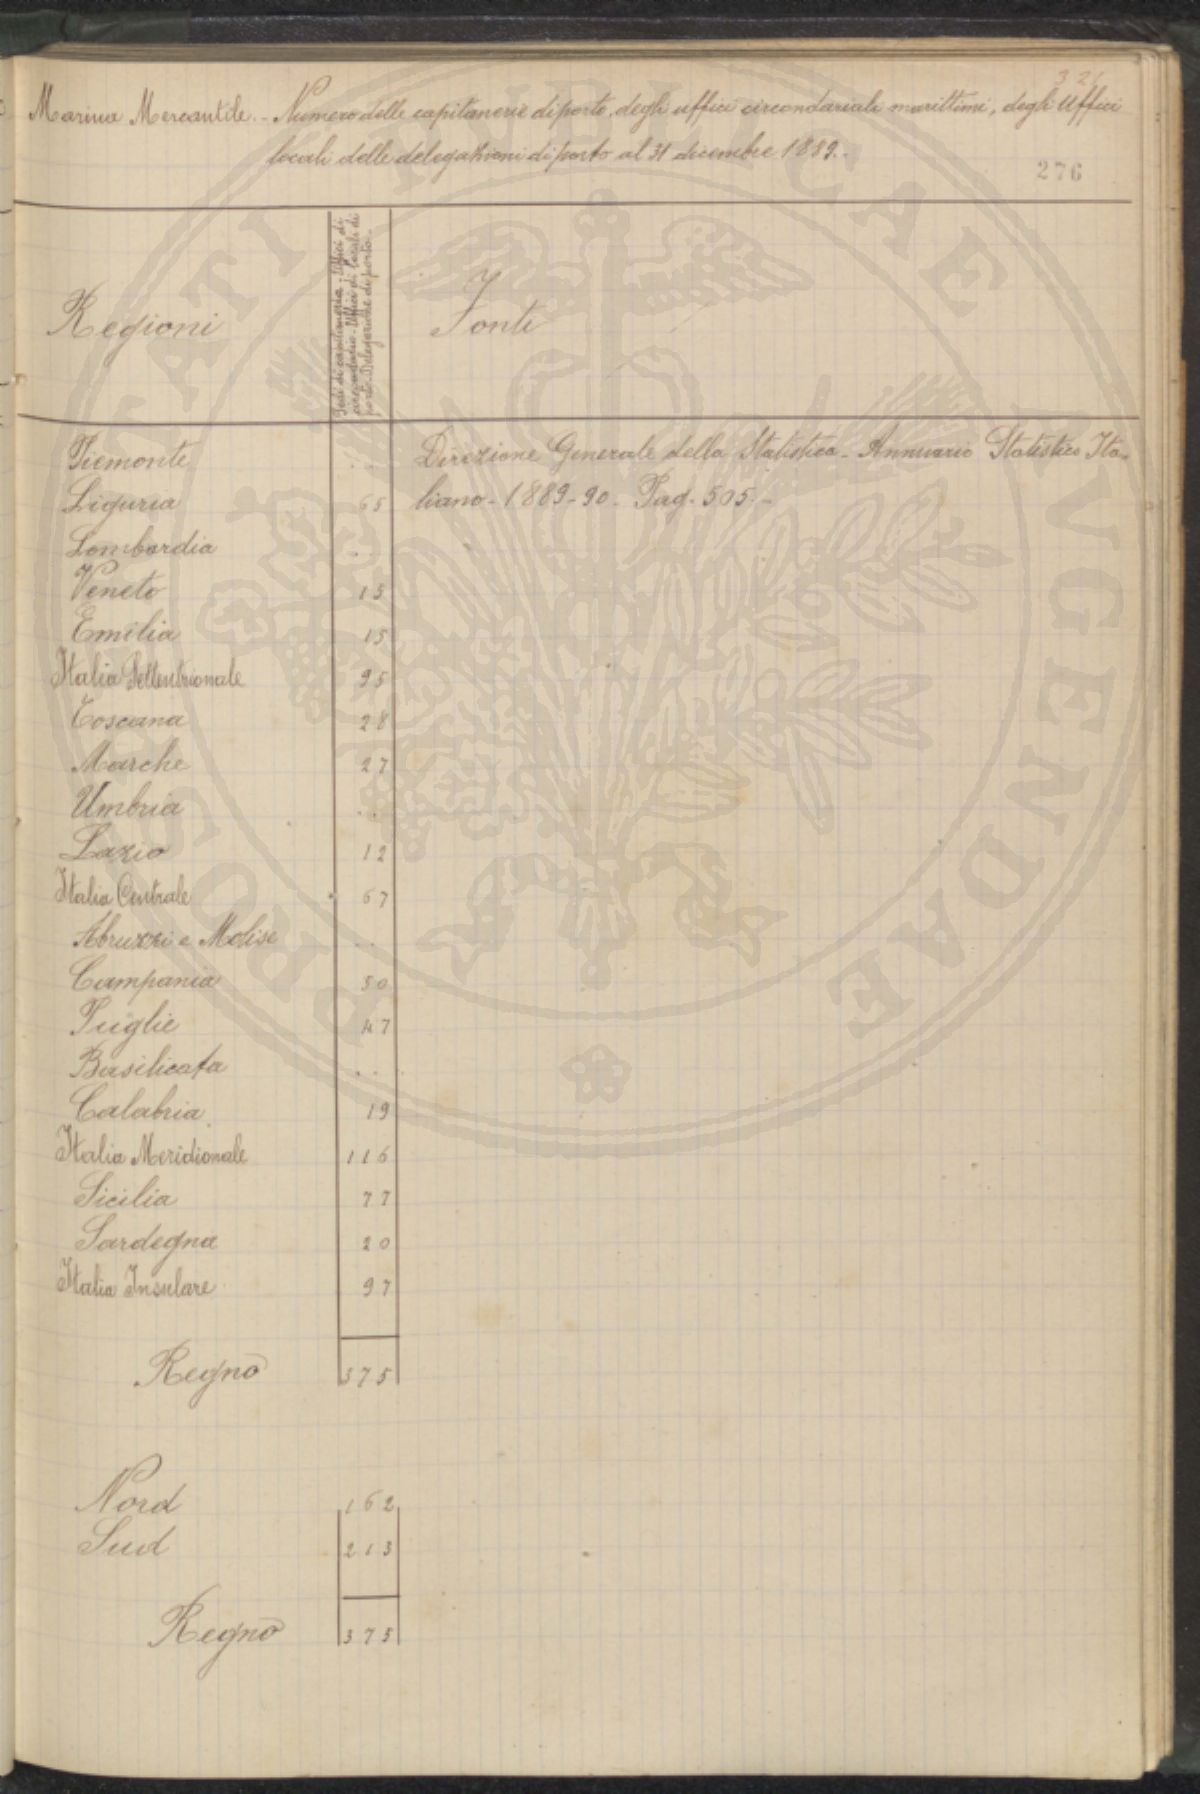 321
Marina Mercantile. - Numero delle capitanerie di porto, degli uffici circondariali marittimi, degli Uffici
locali delle delegazioni di porto al 31 dicembre 1889. -
276
Regioni
Sedi di capitaneria - Uffici di
circondario - Uffici di locali di
porto. Delegazione di porto. -
Fonti
Piemonte . . Direzione Generale della Statistica - Annuario Statistico Ita-
Liguria 65 liano - 1889-90 - Pag. 505. -
Lombardia . .
Veneto 15
Emilia 15
Italia Settentrionale 95
Toscana 28
Marche 27
Umbria . .
Lazio 12
Italia Centrale 67
Abruzzi e Molise . .
Campania 50
Puglie 47
Basilicata . .
Calabria 19
Italia Meridionale 116
Sicilia 77
Sardegna 20
Italia Insulare 97
Regno 375
Nord 162
Sud 213
Regno 375
PROSPERITATI PUBLICAE AUGENDAE